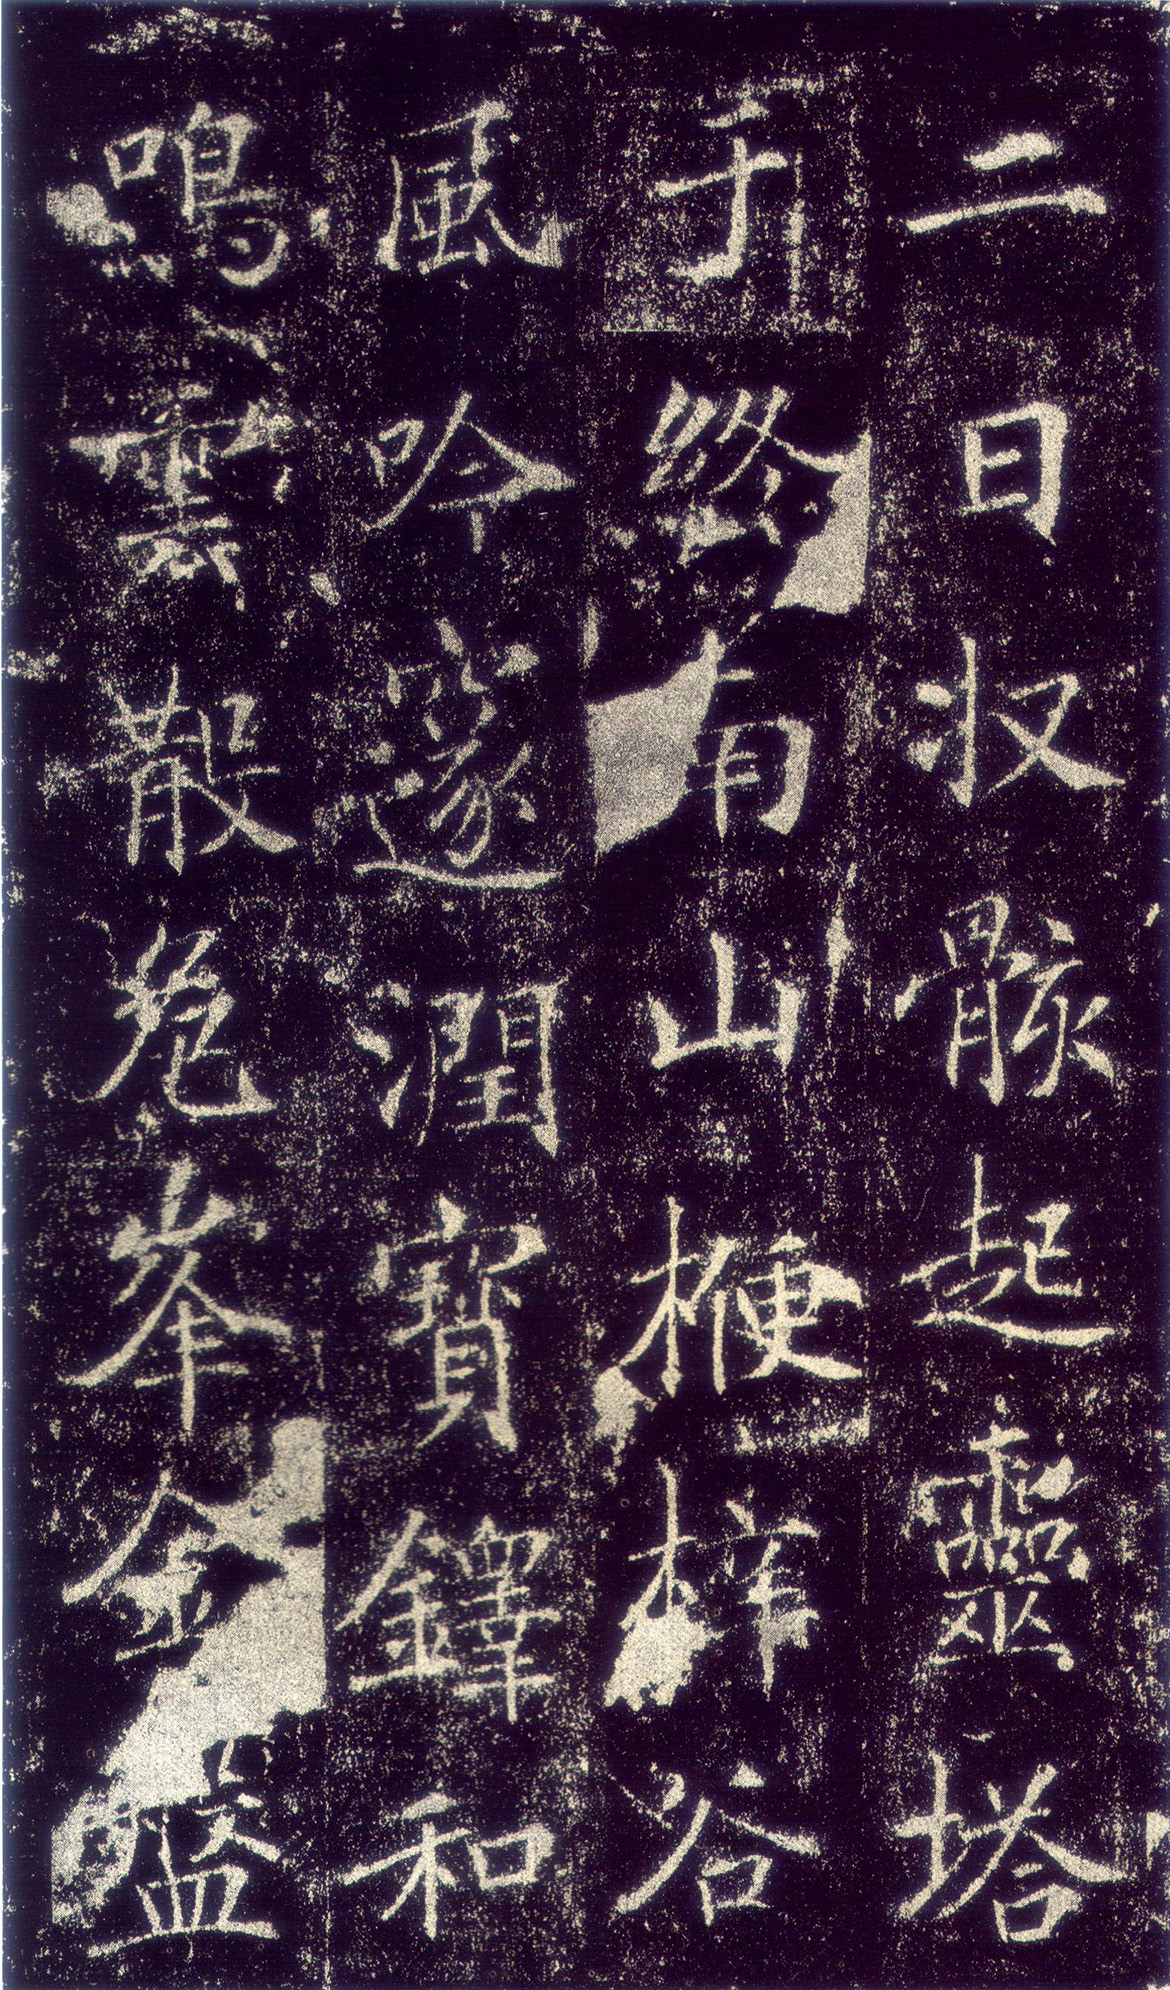 二日収骸起靈塔
于終南山楩梓谷
風吟邃潤寶鐸和
鳴雲散危峯金盤